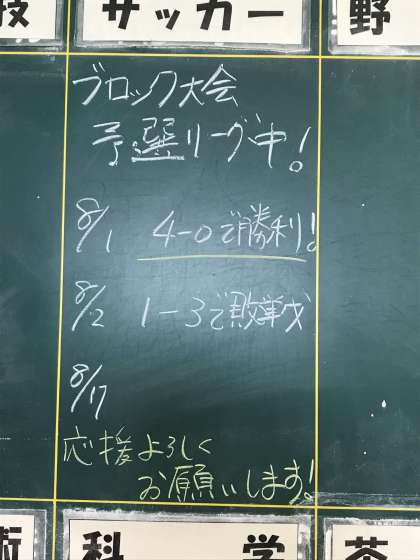 技 サッカー 野
ブロック大会
予選リーグ中!
8/1 4-0で勝利!
8/2 1-3で敗戦
8/17
応援よろしく
お願いします!
術 科学 茶